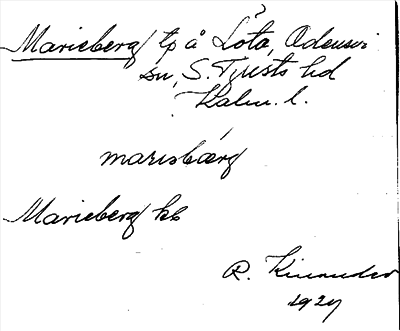 Marieberg tp å Lota, Odensvi
sn, S. Tjusts hd
Kalm. l.
marisbærg
Marieberg kb
R. 
1927